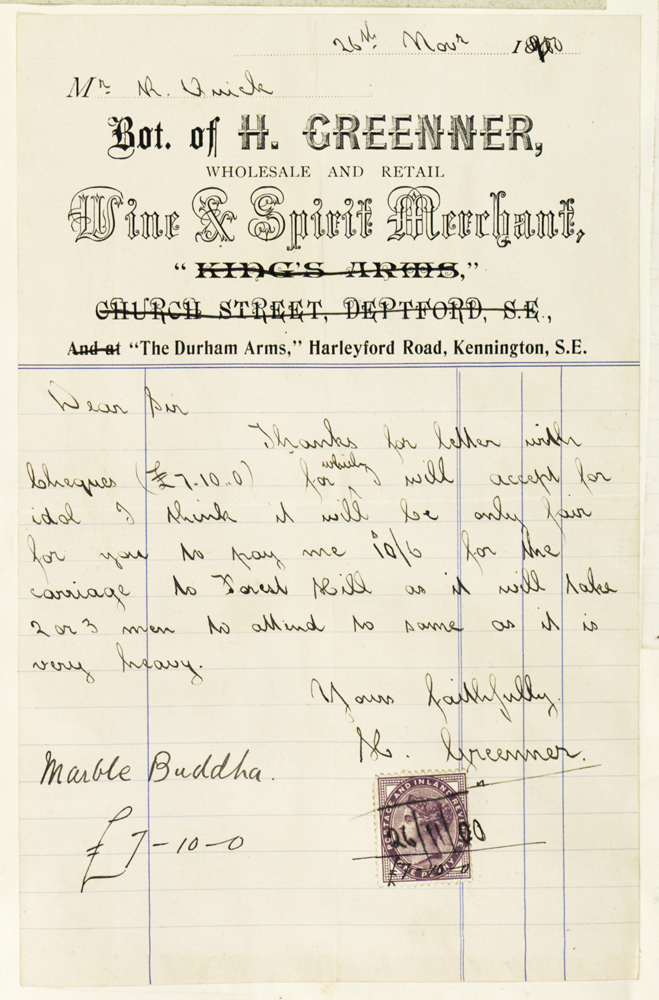 26th Novr 1900
Mr R. Quick
Bot. of H. GREENNER,
WHOLESALE AND RETAIL
Wine & Spirit Merchant,
“KING'S ARMS,”
CHURCH STREET, DEPTFORD, S.E.,
And at “The Durham Arms,” Harleyford Road, Kennington, S.E.
Dear Sir
Thanks for letter with
Cheques (£7.10..0) for which I will accept for
idol I think it will be only fair
for you to pay me 10/6 for the
carriage to Forest Hill as it will take
2 or 3 men to attend to same as it is
very heavy.
Yours faithfully
H. Greenner.
Marble Buddha.
£7-10-0
POSTAGE AND INLAND REVENUE
26/11/00
ONE PENNY